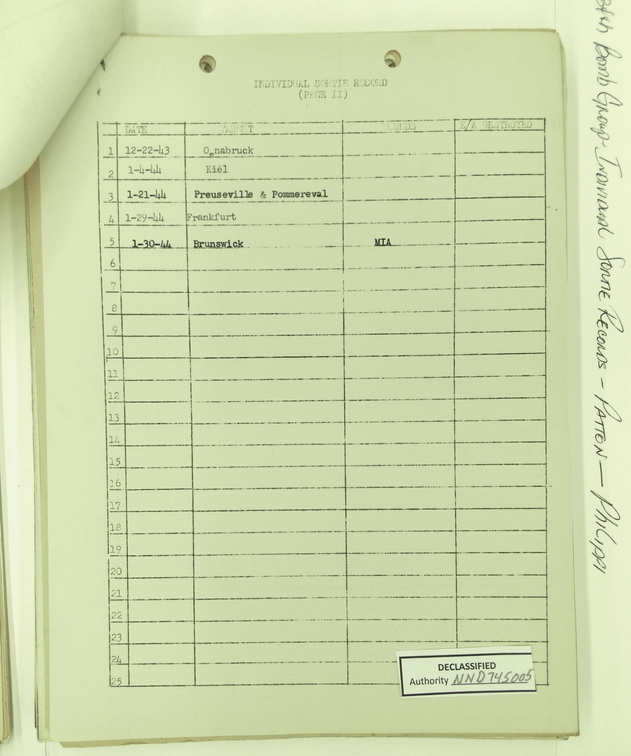 INDIVIDUAL SORTIE RECORD
(PAGE II)
DATE E/A DESTROYED
1 12-22-43 Osnabruck
2 1-4-44 Kiel
3 1-21-44 Preuseville & Pommereval
4 1-29-44 Frankfurt
5 1-30-44 Brunswick MIA
6
7
8
9
10
11
12
13
14
15
16
17
18
19
20
21
22
23
24
25
DECLASSIFIED
Authority NND 745005
Bomb Group - Individual Sortie Records - PATTON - Philippi